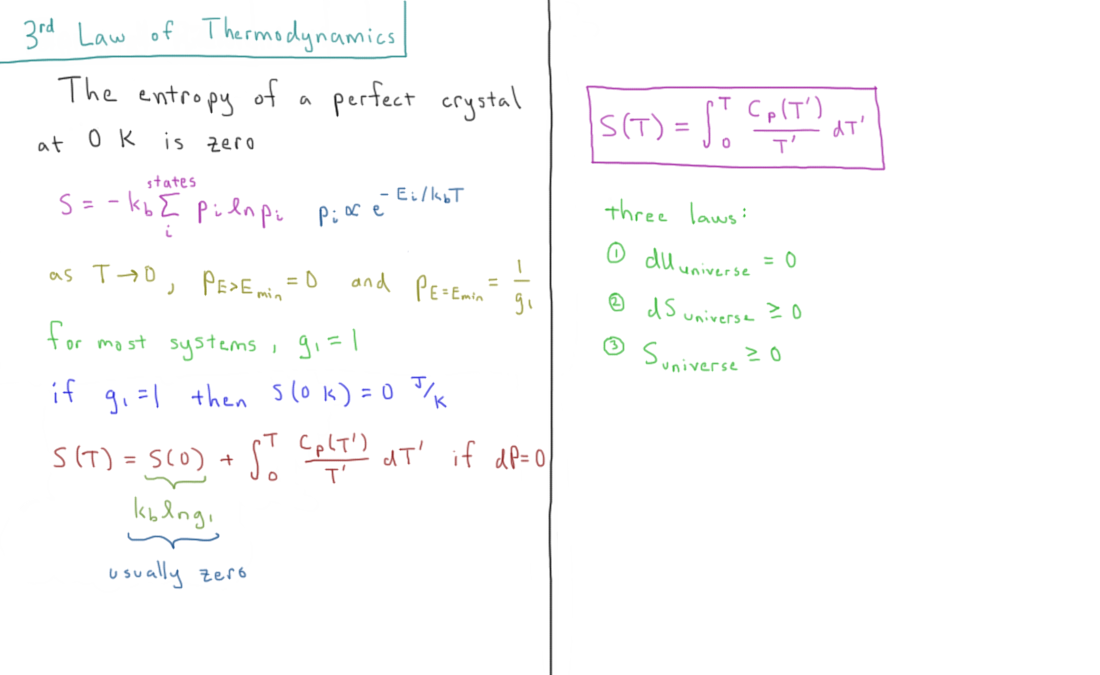 3rd Law of Thermodynamics
The entropy of a perfect crystal
at 0 K is zero
S = - k_b Σ_i^states p_i ln p_i   p_i ∝ e^(-E_i/k_bT)
as T→0, P_E>E_min = 0 and P_E=E_min = 1/g_1
for most systems, g_1 = 1
if g_1 = 1 then S(0 K) = 0 J/K
S(T) = S(0) + ∫_0^T C_p(T')/T' dT' if dP=0
k_b ln g_1
usually zero
S(T) = ∫_0^T C_p(T')/T' dT'
three laws:
① dU_universe = 0
② dS_universe ≥ 0
③ S_universe ≥ 0